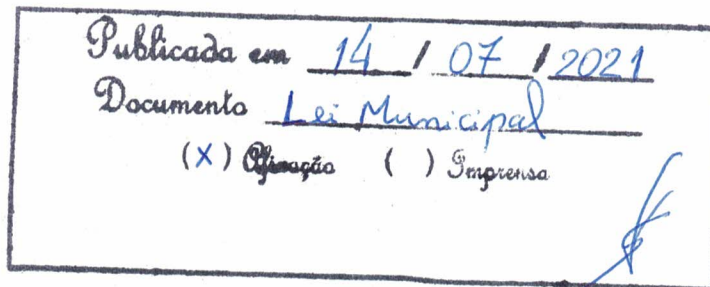 Publicada em 14 / 07 / 2021
Documento Lei Municipal
(X) Afixação ( ) Imprensa